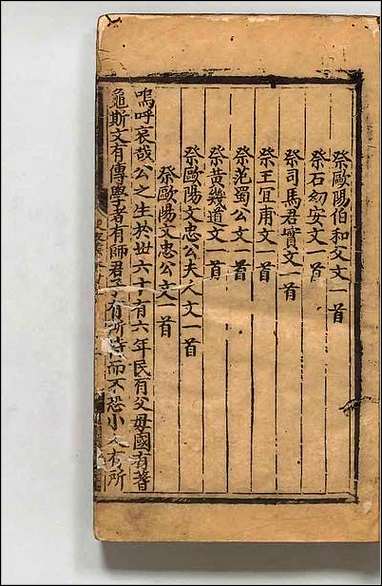 祭歐陽伯和父文一首
祭石幼安文一首
祭司馬君實文一首
祭王宜甫文一首
祭范蜀公文一首
祭黃幾道文一首
祭歐陽文忠公夫人文一首
祭歐陽文忠公文一首
嗚呼哀哉公之生於世六十有六年民有父母國有蓍
龜斯文有傳學者有師君子有所恃而不恐小人有所